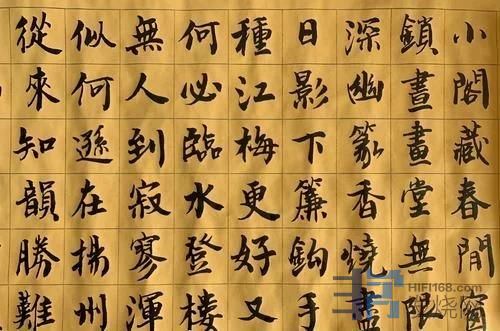 小閣藏春閒窗
鎖晝畫堂無限
深幽篆香燒盡
日影下簾鉤手
種江梅更好又
何必臨水登樓
無人到寂寥渾
似何遜在揚州
從來知韻勝難
HIFI168.com